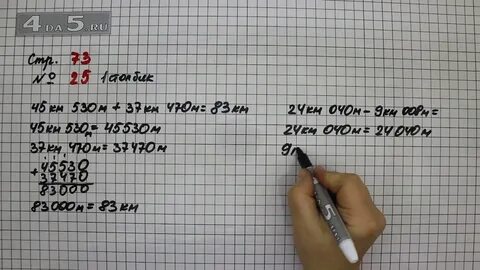 4DA5.RU
Стр. 73
№ 25 1 столбик
45км 530м + 37км 470м = 83км
45км 530м = 45530м
37км 470м = 37470м
+ 45530
37470
83000
83000м = 83км
24км 040м - 9км 008м =
24км 040м = 24040м
9